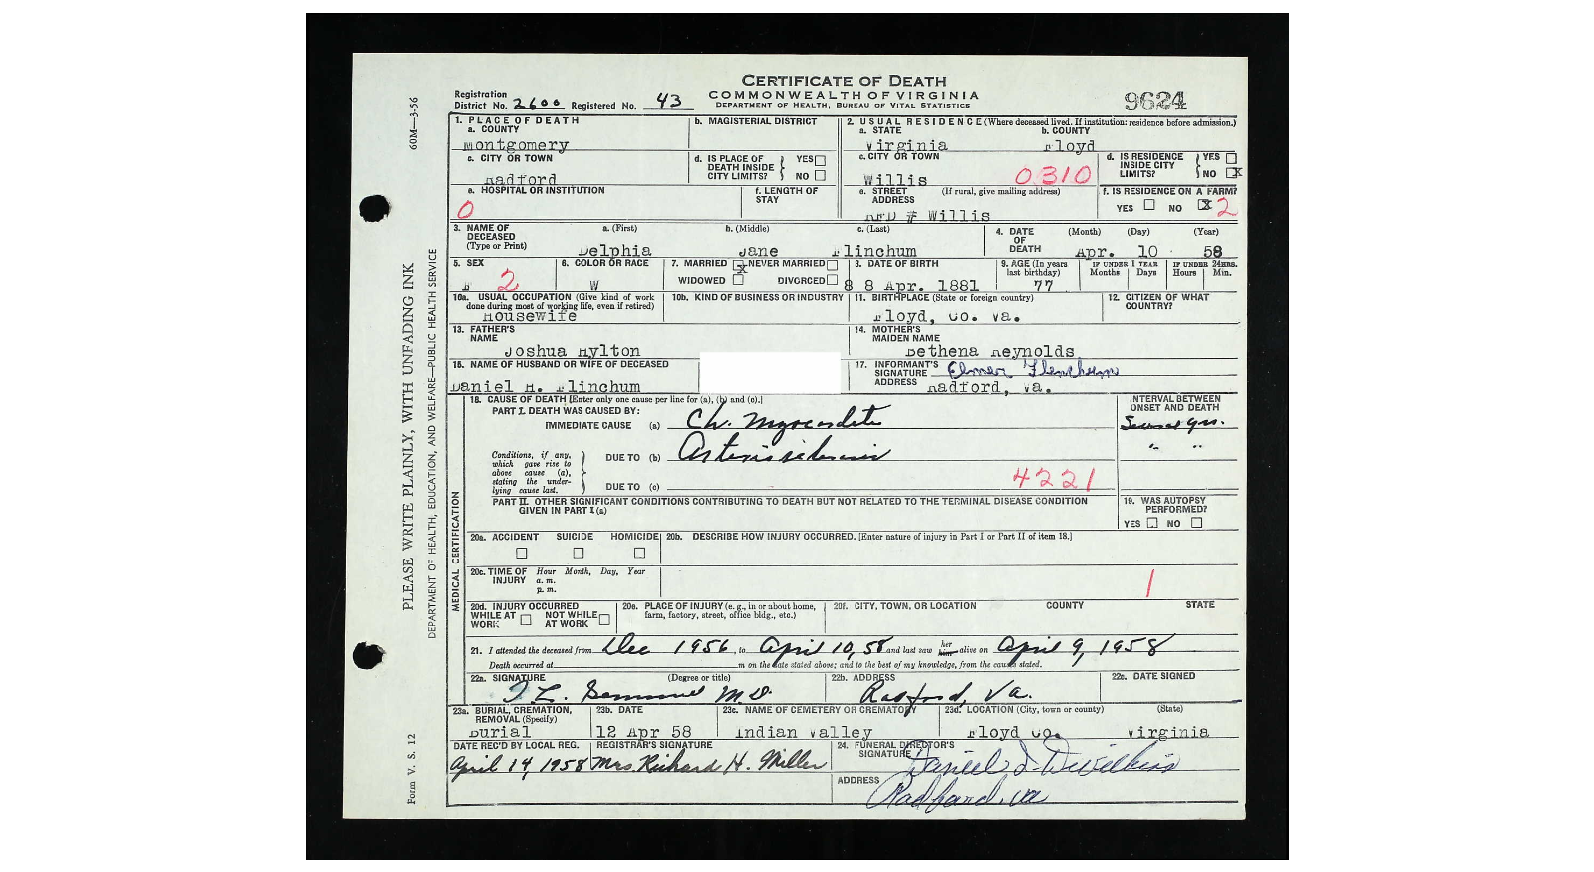 CERTIFICATE OF DEATH
COMMONWEALTH OF VIRGINIA
DEPARTMENT OF HEALTH, BUREAU OF VITAL STATISTICS
Registration District No. 2600 Registered No. 43
9624
60M—3-56
PLEASE WRITE PLAINLY, WITH UNFADING INK
DEPARTMENT OF HEALTH, EDUCATION, AND WELFARE—PUBLIC HEALTH SERVICE
Form V. S. 12
1. PLACE OF DEATH
a. COUNTY
Montgomery
b. MAGISTERIAL DISTRICT
c. CITY OR TOWN
Radford
d. IS PLACE OF DEATH INSIDE CITY LIMITS? YES NO
e. HOSPITAL OR INSTITUTION
0
f. LENGTH OF STAY
2. USUAL RESIDENCE (Where deceased lived. If institution: residence before admission.)
a. STATE
Virginia
b. COUNTY
Floyd
c. CITY OR TOWN
Willis
0310
d. IS RESIDENCE INSIDE CITY LIMITS? YES NO X
e. STREET ADDRESS (If rural, give mailing address)
RFD # Willis
f. IS RESIDENCE ON A FARM?
YES NO X 2
3. NAME OF DECEASED (Type or Print)
a. (First) b. (Middle) c. (Last)
Delphia Jane Flinchum
4. DATE OF DEATH (Month) (Day) (Year)
Apr. 10 58
5. SEX
F 2
6. COLOR OR RACE
W
7. MARRIED X NEVER MARRIED
WIDOWED DIVORCED
8. DATE OF BIRTH
8 8 Apr. 1881
9. AGE (In years last birthday)
77
IF UNDER 1 YEAR Months Days
IF UNDER 24HRS. Hours Min.
10a. USUAL OCCUPATION (Give kind of work done during most of working life, even if retired)
Housewife
10b. KIND OF BUSINESS OR INDUSTRY
11. BIRTHPLACE (State or foreign country)
Floyd, Co. Va.
12. CITIZEN OF WHAT COUNTRY?
13. FATHER'S NAME
Joshua Hylton
14. MOTHER'S MAIDEN NAME
Bethena Reynolds
15. NAME OF HUSBAND OR WIFE OF DECEASED
Daniel H. Flinchum
17. INFORMANT'S SIGNATURE Elmer Flinchum
ADDRESS Radford, Va.
MEDICAL CERTIFICATION
18. CAUSE OF DEATH [Enter only one cause per line for (a), (b) and (c).]
INTERVAL BETWEEN ONSET AND DEATH
PART I. DEATH WAS CAUSED BY:
IMMEDIATE CAUSE (a) Ch. Myocardits
Several yrs.
Conditions, if any, which gave rise to above cause (a), stating the underlying cause last.
DUE TO (b) Arteriosclerosis
" "
DUE TO (c)
4221
PART II. OTHER SIGNIFICANT CONDITIONS CONTRIBUTING TO DEATH BUT NOT RELATED TO THE TERMINAL DISEASE CONDITION GIVEN IN PART I (a)
19. WAS AUTOPSY PERFORMED?
YES NO
20a. ACCIDENT SUICIDE HOMICIDE
20b. DESCRIBE HOW INJURY OCCURRED. [Enter nature of injury in Part I or Part II of item 18.]
20c. TIME OF INJURY Hour Month, Day, Year
a. m.
p. m.
1
20d. INJURY OCCURRED
WHILE AT WORK NOT WHILE AT WORK
20e. PLACE OF INJURY (e. g., in or about home, farm, factory, street, office bldg., etc.)
20f. CITY, TOWN, OR LOCATION COUNTY STATE
21. I attended the deceased from Dec 1956, to April 10, 58 and last saw her him alive on April 9, 1958
Death occurred at m on the date stated above; and to the best of my knowledge, from the causes stated.
22a. SIGNATURE (Degree or title)
M.D.
22b. ADDRESS
Radford, Va.
22c. DATE SIGNED
23a. BURIAL, CREMATION, REMOVAL (Specify)
Burial
23b. DATE
12 Apr 58
23c. NAME OF CEMETERY OR CREMATORY
Indian Valley
23d. LOCATION (City, town or county) (State)
Floyd Co. Virginia
DATE REC'D BY LOCAL REG.
April 14, 1958
REGISTRAR'S SIGNATURE
Mrs. Richard H. Miller
24. FUNERAL DIRECTOR'S SIGNATURE
Daniel
ADDRESS
Radford, Va